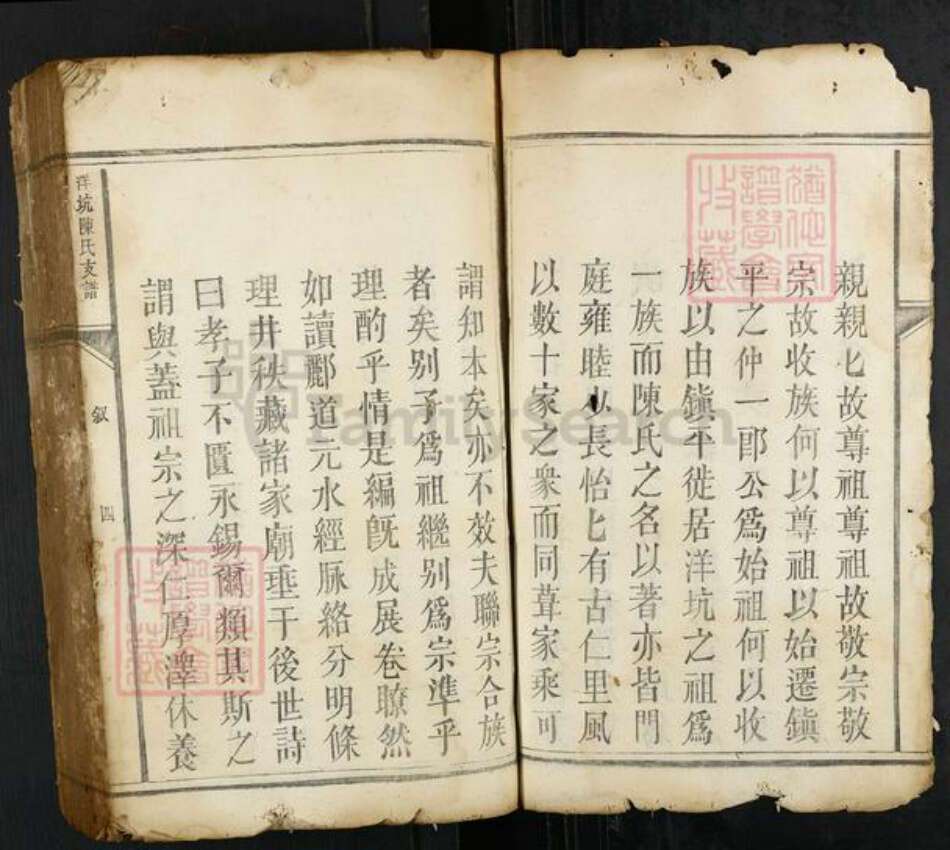 親親匕故尊祖尊祖故敬宗敬
宗故收族何以尊祖以始遷鎮
平之仲一郎公爲始祖何以收
族以由鎮平徙居洋坑之祖爲
一族而陳氏之名以著亦皆門
庭雍睦少長怡匕有古仁里風
以數十家之衆而同葺家乘可
謂知本矣亦不效夫聯宗合族
者矣别子爲祖繼别爲宗準乎
理酌乎情是編旣成展卷瞭然
如讀酈道元水經脉絡分明條
理井秩藏諸家廟垂于後世詩
曰孝子不匱永錫爾類其斯之
謂與蓋祖宗之深仁厚澤休養
洋坑陳氏支譜
叙
四
猶他家
譜學會
收藏
譜學會
收藏
FamilySearch